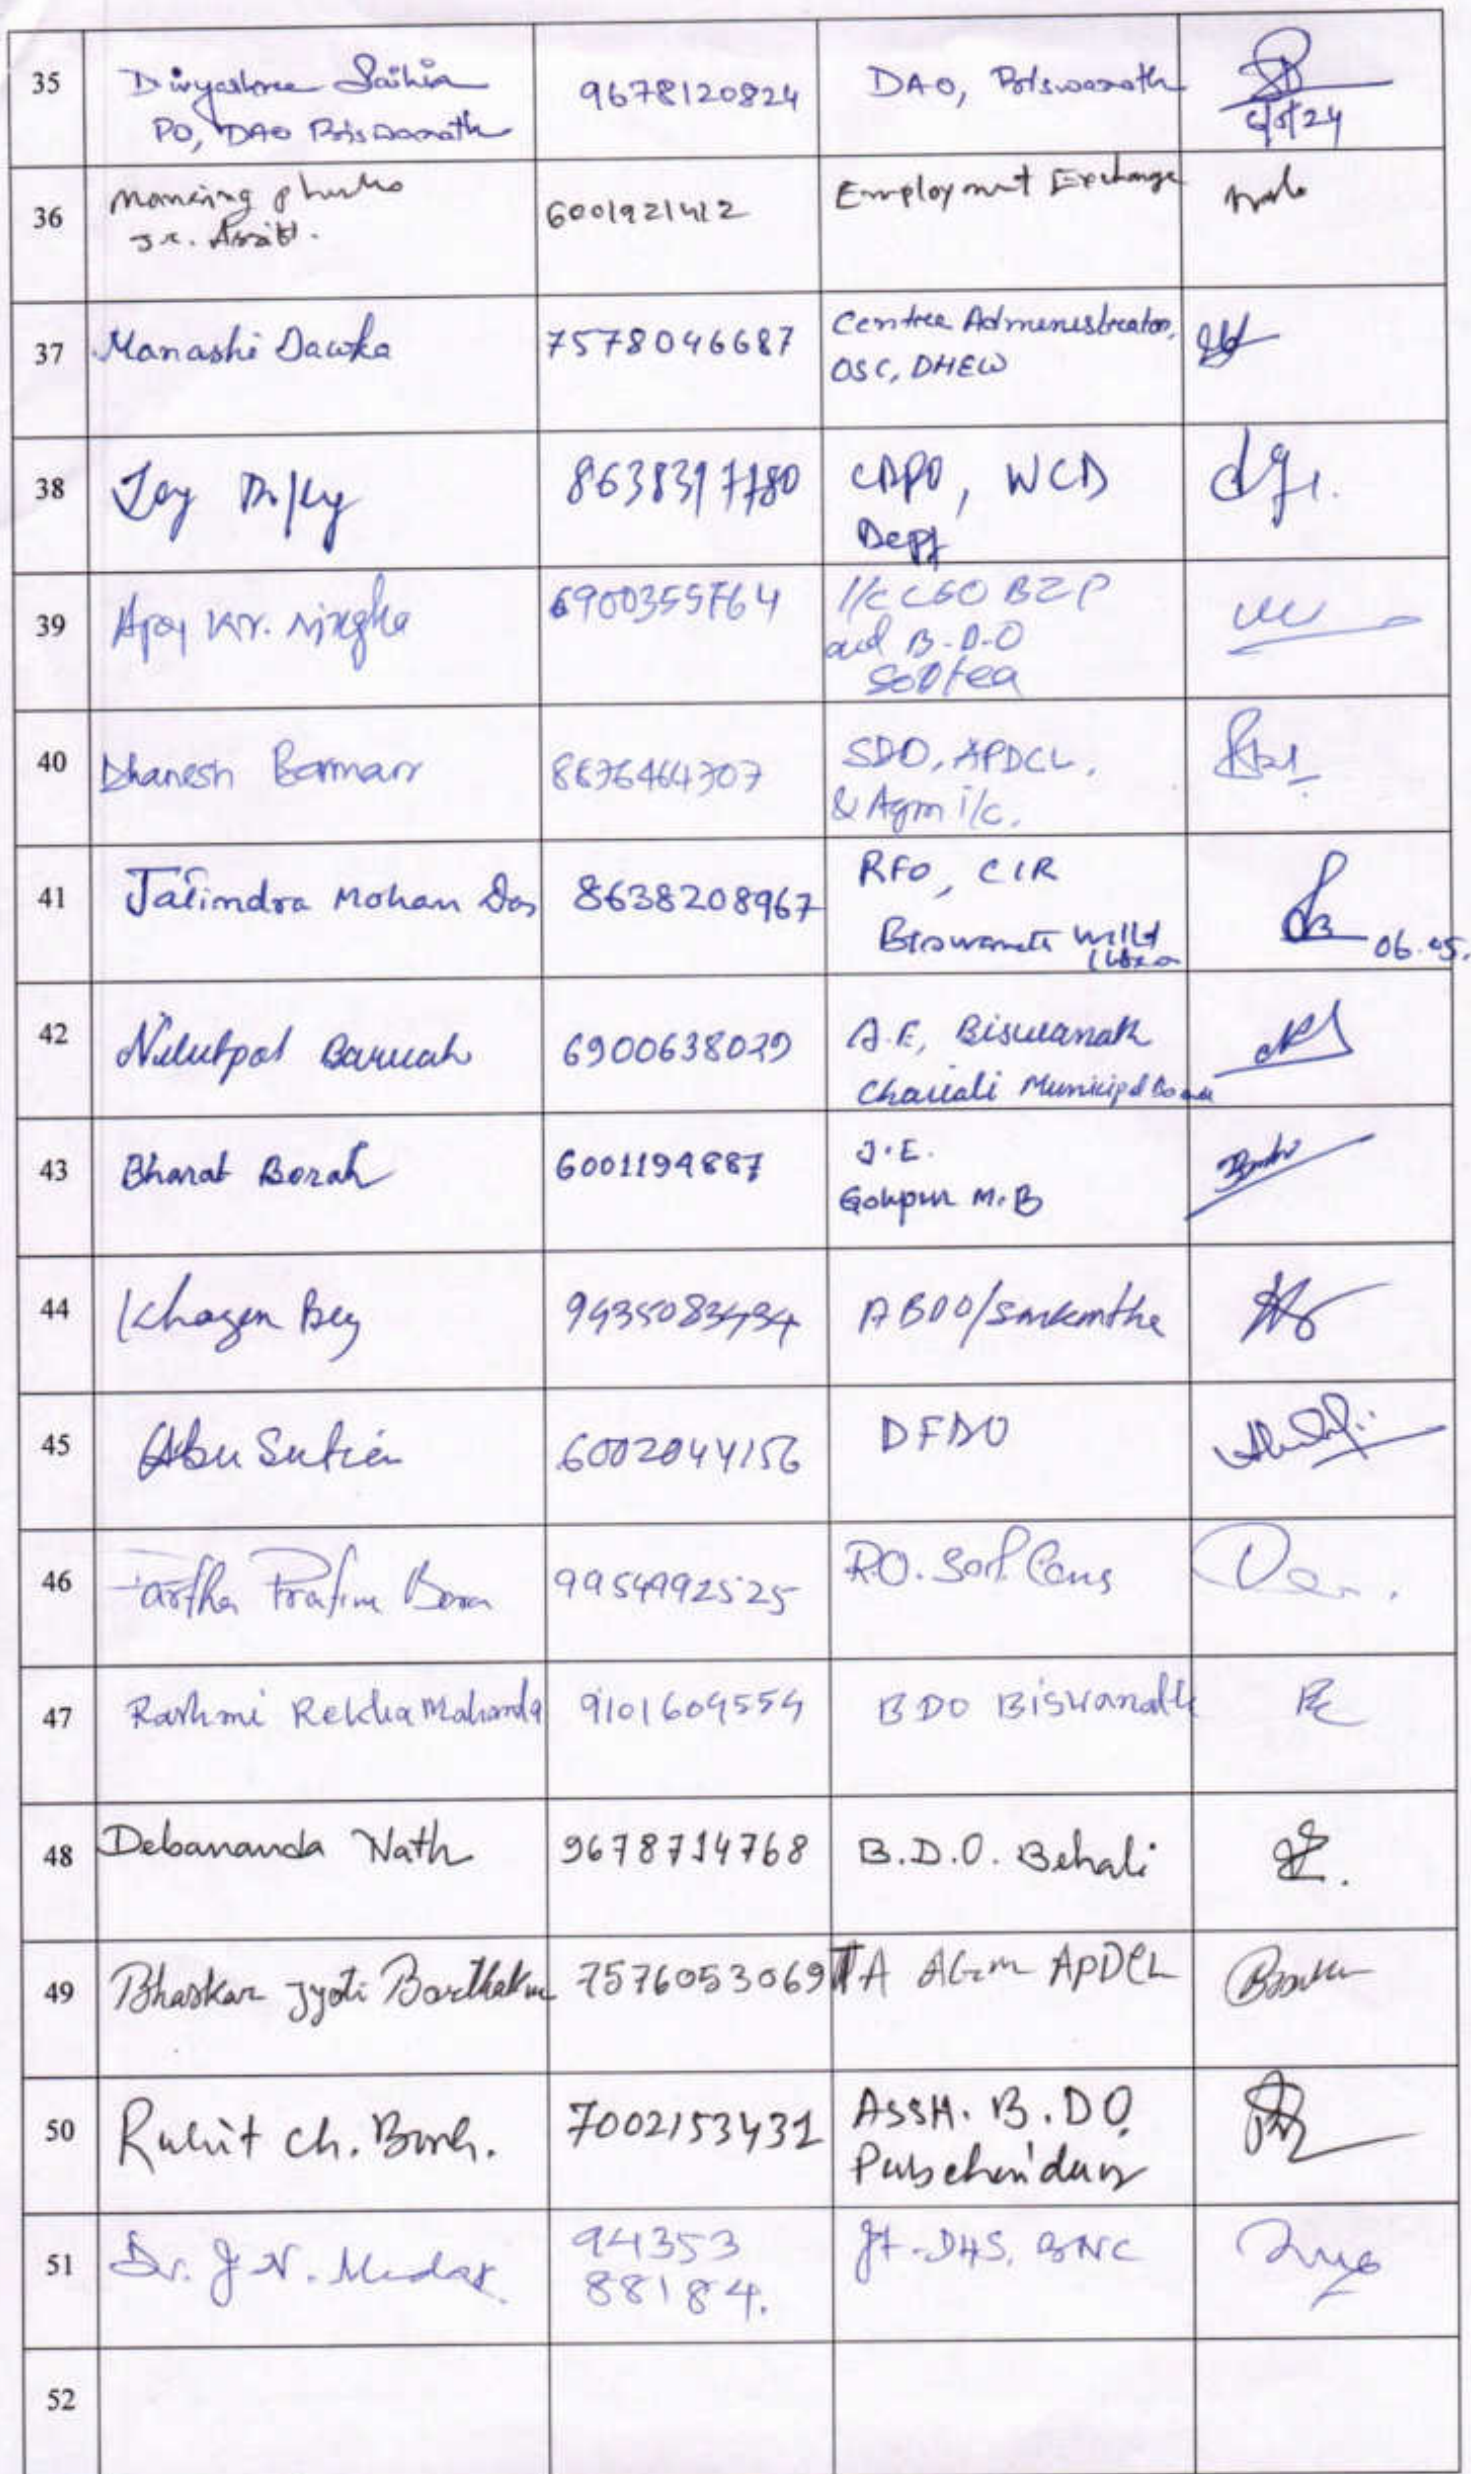 35 Divyashree Saikia 9678120824 DAO, Biswanath
PO, DAO Biswanath 6/5/24
36 6001921412 Employment Exchange
Jr. Assitt.
37 Manashi Dawka 7578046687 Centre Administrator,
OSC, DHEW
38 Joy 863831 CDPO, WCD
Dept
39 Ajoy Kr. Singha I/c CEO BZP
and B.D.O
Sootea
40 Dhanesh Barman SDO, APDCL,
& Agm i/c.
41 Jatindra Mohan Das 8638208967 RFO, CIR
Biswanath 06.05.
42 Nilutpal Baruah 6900638029 A.E, Biswanath
Chariali Municipal Board
43 Bharat Borah 6001194887 J.E.
Gohpur M.B
44 Khagen Bey ABDO/
45 Abu Sufian 6002044156 DFDO
46 Partha Pratim Bora 9954992525 R.O. Soil Cons
47 Rashmi Rekha Mahanta 9101604554 BDO Biswanath
48 Debananda Nath 9678714768 B.D.O. Behali
49 Bhaskar Jyoti Borthakur 7576053069 TA AGM APDCL
50 Ruhit Ch. Borah. 7002153431 Asstt. B.D.O.
Pubchaiduar
51 Dr. J. N. 94353 Jt. DHS, BNC
88184.
52